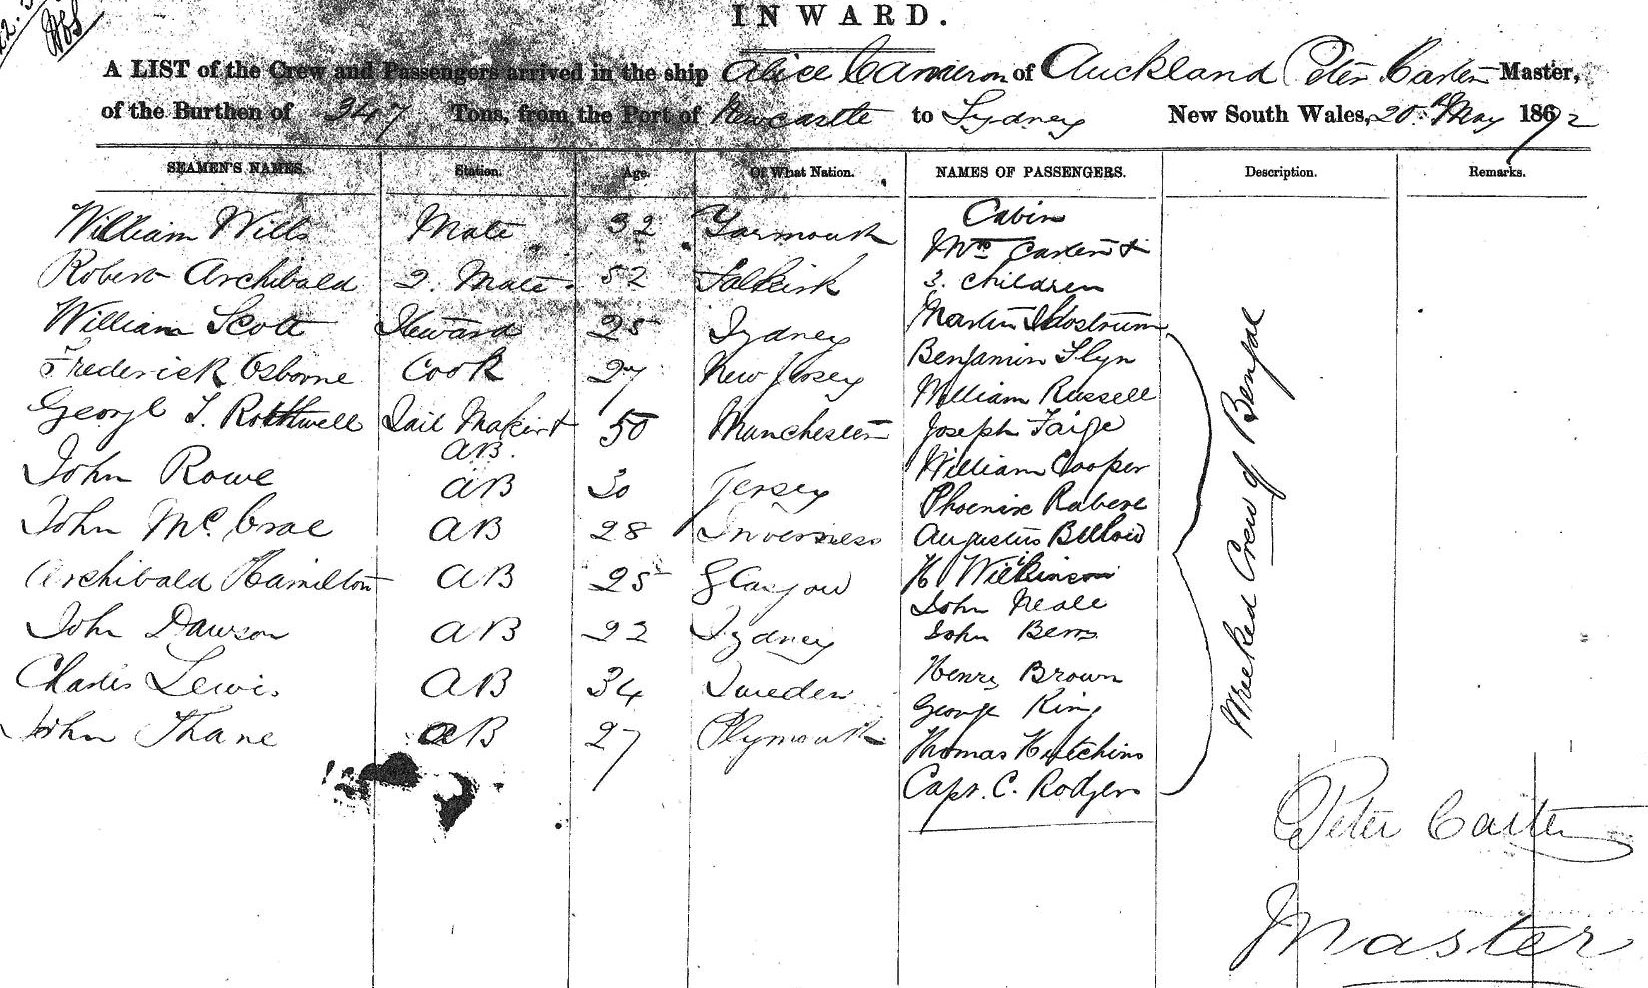 INWARD.
A LIST of the Crew and Passengers arrived in the ship Alice Cameron of Auckland Peter Carter Master,
of the Burthen of 347 Tons, from the Port of Newcastle to Sydney New South Wales, 20th May 1872
SEAMEN'S NAMES. Station. Age. Of What Nation. NAMES OF PASSENGERS. Description. Remarks.
Cabin
William Wills Mate 32 Yarmouth Mrs Carter &
Robert Archibald 2. Mate 52 Falkirk 3. children
William Scott Steward 25 Sydney Martin
Frederick Osborne Cook 27 New Jersey Benjamin Flyn
William Russell
George T. Rothwell Sail Maker & 50 Manchester Joseph Faige
AB.
William Cooper
John Rowe AB 30 Jersey Phoenix Rabere
John McCrae AB 28 Inverness Augustus
Archibald Hamilton AB 25 Glasgow H Wilkinson
John Neale
John Dawson AB 22 Sydney John
Charles Lewis AB 34 Sweden Henry Brown
George King
John Thane AB 27 Plymouth Thomas Hutchins
Capt. C. Rodgers
Wrecked Crew of Bengal
Peter Carter
Master